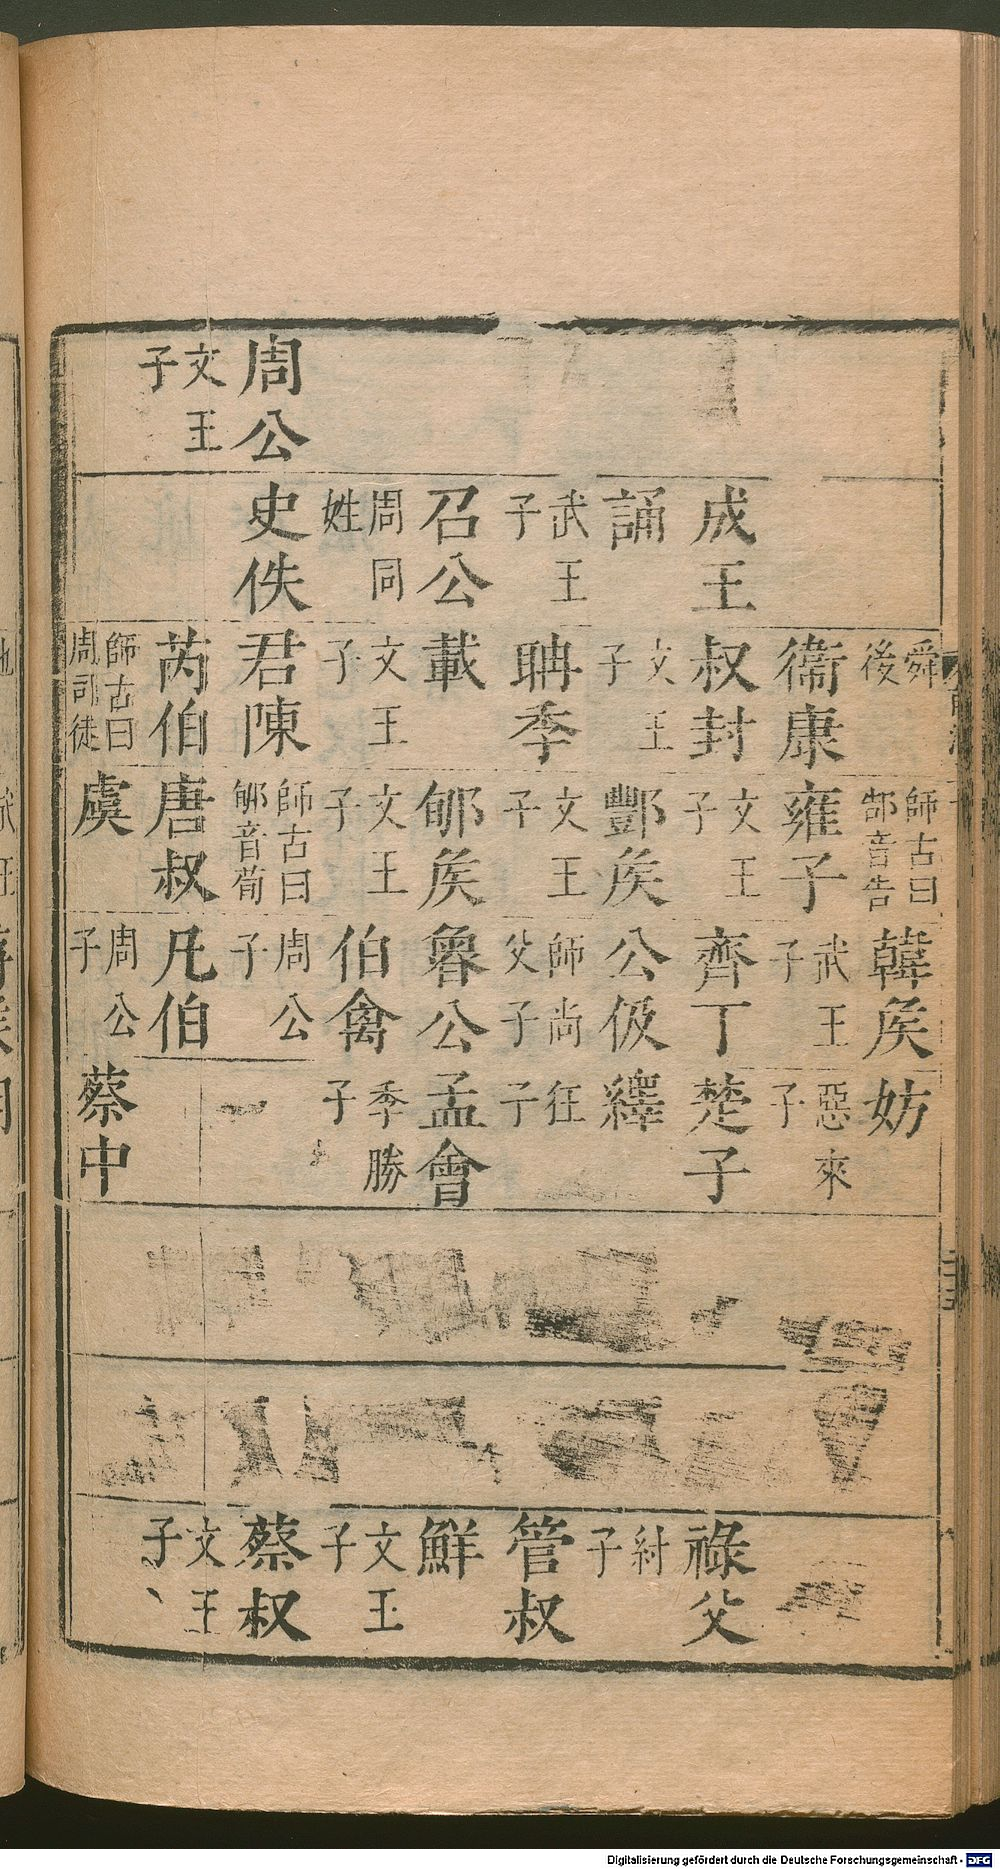 周公
文王
子
成王
誦
武王
子
召公
周同
姓
史佚
舜
後
衞康
叔封
文王
子
聃季
載
文王
子
君陳
芮伯
師古曰
周司徒
師古曰
郜音告
雍子
文王
子
酆矦
文王
子
郇矦
文王
子
師古曰
郇音荀
唐叔
虞
韓矦
武王
子
齊丁
公伋
師尚
父子
魯公
伯禽
周公
子
凡伯
周公
子
妨
惡來
子
楚子
繹
狂
子
孟會
季勝
子
蔡中
祿父
紂
子
管叔
鮮
文王
子
蔡叔
文王
子
Digitalisierung gefördert durch die Deutsche Forschungsgemeinschaft - DFG